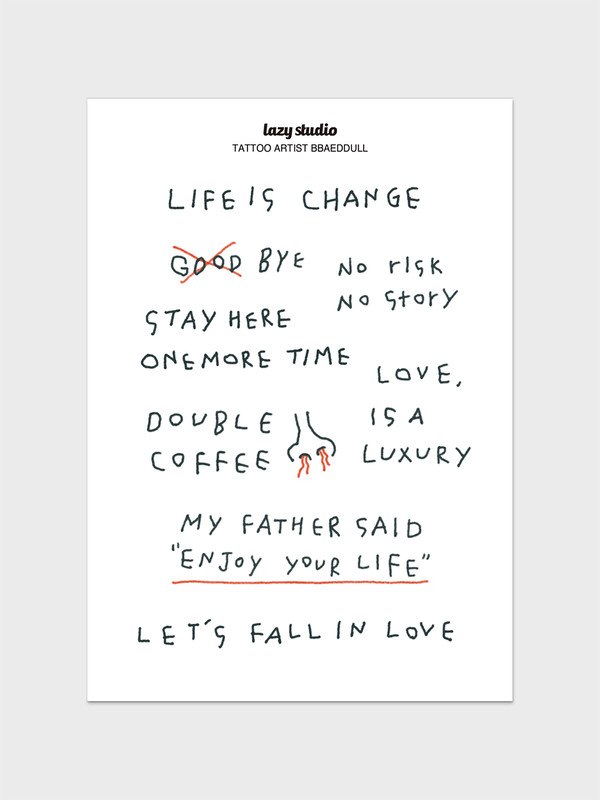 lazy studio
TATTOO ARTIST BBAEDDULL
LIFE IS CHANGE
GOOD BYE
No rISK
No Story
STAY HERE
ONE MORE TIME
LOVE,
IS A
LUXURY
DOUBLE
COFFEE
MY FATHER SAID
"ENJOY YOUR LIFE"
LET'S FALL IN LOVE